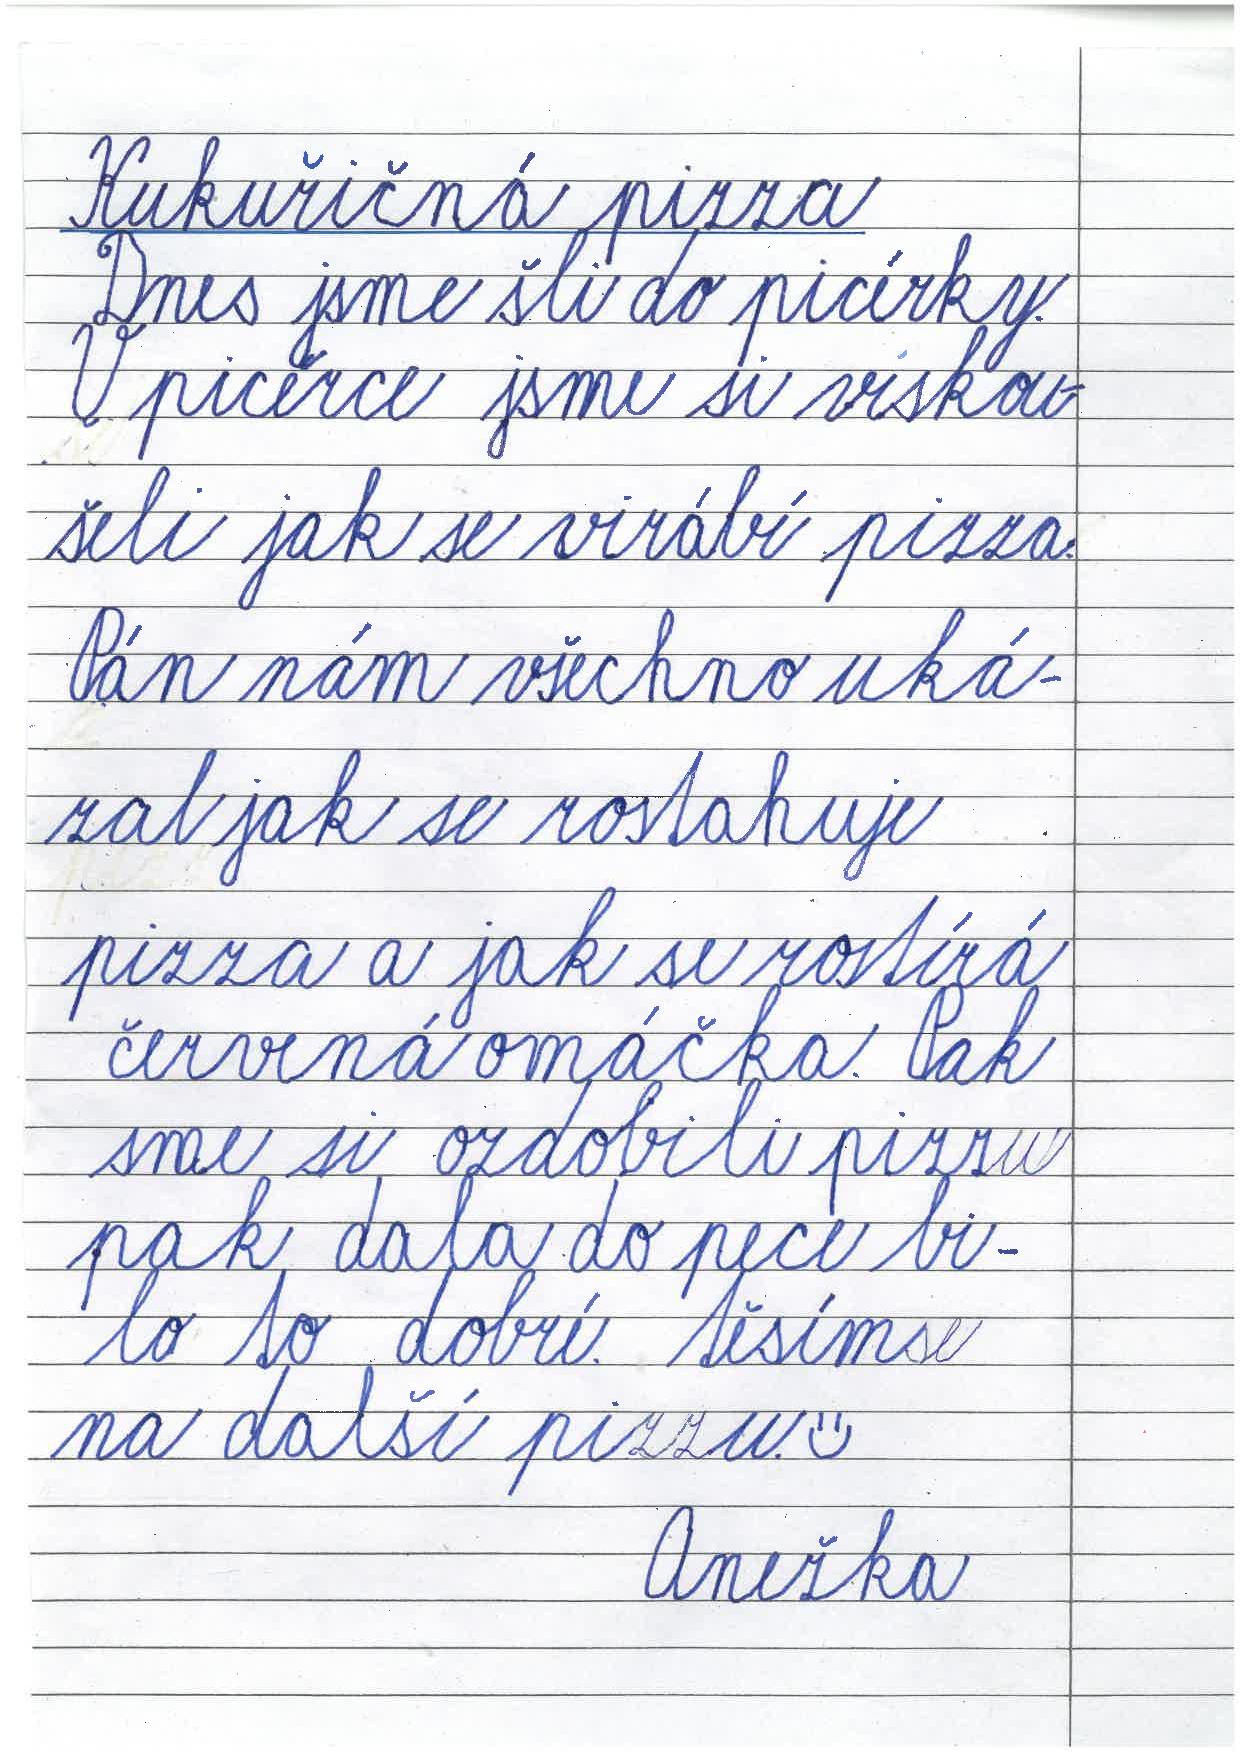 Kukuřičná pizza
Dnes jsme šli do picérky.
V picérce jsme si viskou-
šeli jak se virábí pizza.
Pán nám všechno uká-
zal jak se rostahuje
pizza a jak se rostírá
červená omáčka. Pak
sme si ozdobili pizzu
pak dala do pece bi-
lo to dobré. těsím se
na další pizzu.
Anežka